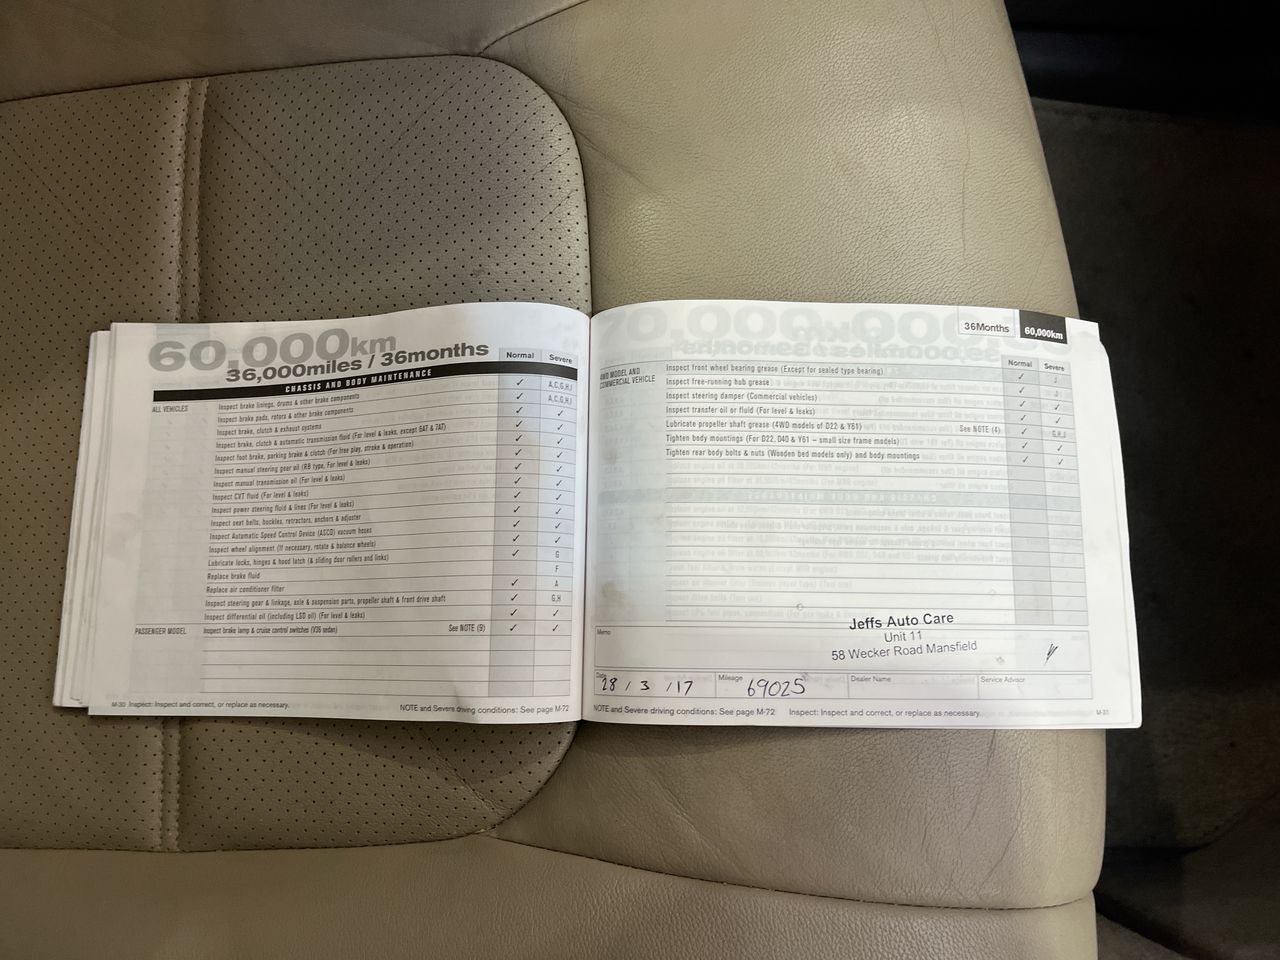 60,000km
36,000miles / 36months
Normal Severe
CHASSIS AND BODY MAINTENANCE
ALL VEHICLES
Inspect brake linings, drums & other brake components ✓ A,C,G,H,I
Inspect brake pads, rotors & other brake components ✓ A,C,G,H,I
Inspect brake, clutch & exhaust systems ✓ ✓
Inspect brake, clutch & automatic transmission fluid (For level & leaks, except 6AT & 7AT) ✓ ✓
Inspect foot brake, parking brake & clutch (For free play, stroke & operation) ✓ ✓
Inspect manual steering gear oil (RB type, For level & leaks) ✓ ✓
Inspect manual transmission oil (For level & leaks) ✓ ✓
Inspect CVT fluid (For level & leaks) ✓ ✓
Inspect power steering fluid & lines (For level & leaks) ✓ ✓
Inspect seat belts, buckles, retractors, anchors & adjuster ✓ ✓
Inspect Automatic Speed Control Device (ASCD) vacuum hoses ✓ ✓
Inspect wheel alignment (If necessary, rotate & balance wheels) ✓ ✓
Lubricate locks, hinges & hood latch (& sliding door rollers and links) ✓ G
Replace brake fluid F
Replace air conditioner filter ✓ A
Inspect steering gear & linkage, axle & suspension parts, propeller shaft & front drive shaft ✓ G,H
Inspect differential oil (including LSD oil) (For level & leaks) ✓ ✓
PASSENGER MODEL Inspect brake lamp & cruise control switches (V36 sedan) See NOTE (9) ✓ ✓
M-30 Inspect: Inspect and correct, or replace as necessary. NOTE and Severe driving conditions: See page M-72
36Months 60,000km
Normal Severe
4WD MODEL AND
COMMERCIAL VEHICLE
Inspect front wheel bearing grease (Except for sealed type bearing) ✓
Inspect free-running hub grease ✓
Inspect steering damper (Commercial vehicles) ✓ ✓
Inspect transfer oil or fluid (For level & leaks) ✓ ✓
Lubricate propeller shaft grease (4WD models of D22 & Y61) See NOTE (4) ✓ G,H,J
Tighten body mountings (For D22, D40 & Y61 – small size frame models) ✓ ✓
Tighten rear body bolts & nuts (Wooden bed models only) and body mountings ✓ ✓
Memo
Jeffs Auto Care
Unit 11
58 Wecker Road Mansfield
Date 28 / 3 / 17 Mileage 69025 Dealer Name Service Advisor
NOTE and Severe driving conditions: See page M-72 Inspect: Inspect and correct, or replace as necessary. M-31